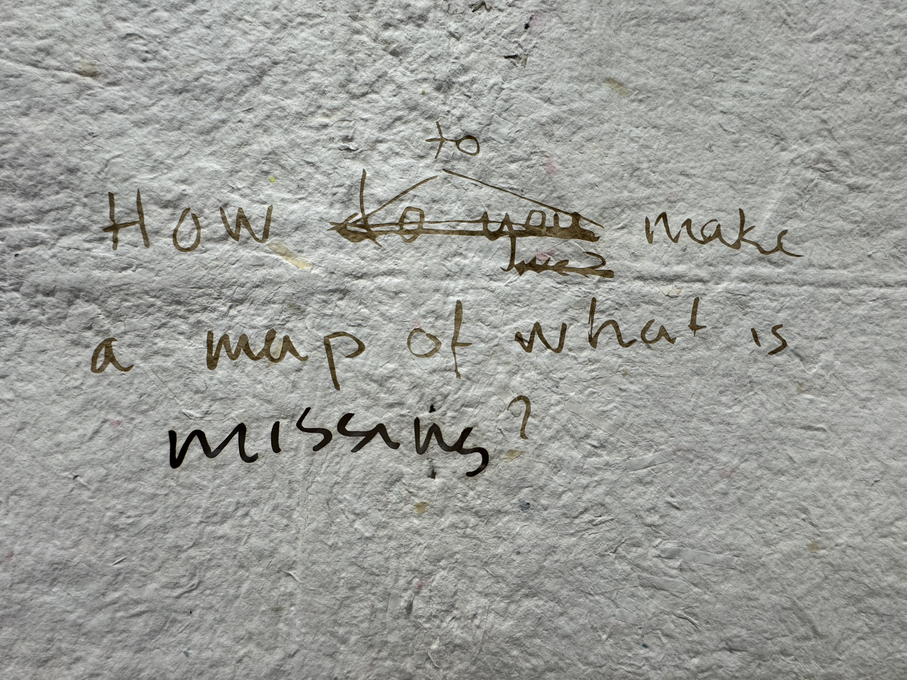 to
How do you make
a map of what is
missing?